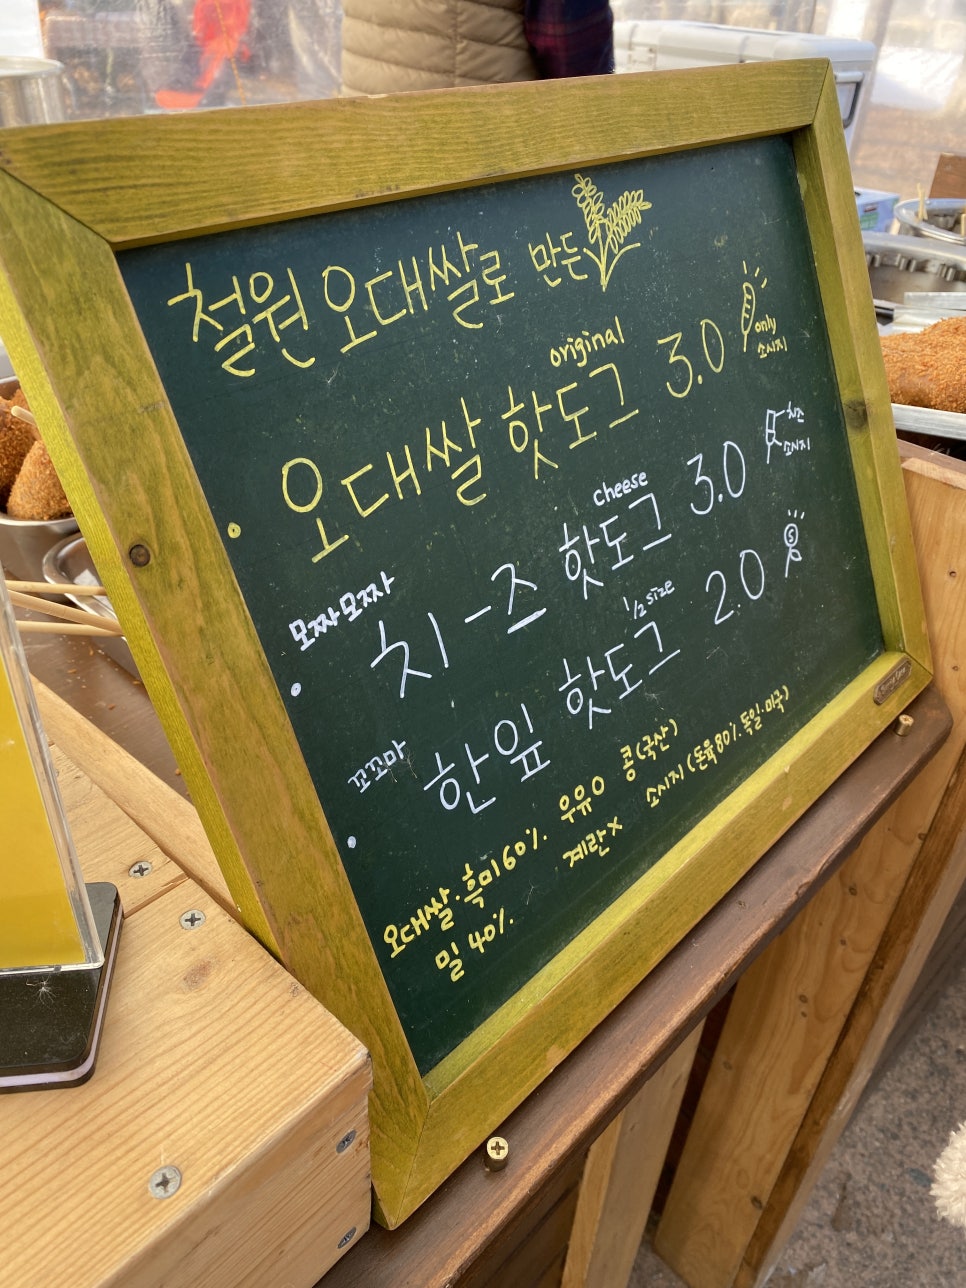 철원 오대쌀로 만든
original
오대쌀 핫도그 3.0
only
소시지
모짜모짜
cheese
치-즈 핫도그 3.0
치즈
소시지
꼬꼬마
1/2 size
한입 핫도그 2.0
S
오대쌀·흑미 60% 우유 O 콩(국산)
밀 40% 계란 X 소시지(돈육 80%. 독일.미국)